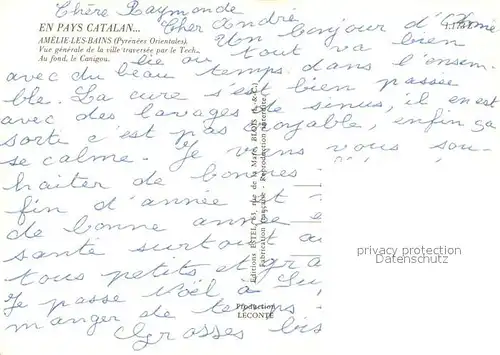 Chère Raymonde
Cher André
EN PAYS CATALAN...
AMÉLIE-LES-BAINS (Pyrénées Orientales).
Vue générale de la ville traversée par le Tech..
Au fond, le Canigou.
Un bonjour d'
où tout va bien
avec du beau temps dans l'ensem-
ble. La cure s'est bien passée
avec des lavages de sinus, il en est
sorti c'est pas croyable, enfin ça
se calme. Je viens vous sou-
haiter de bonnes
fin d'année et
de bonne année
santé surtout au
tous petits et gra
Je passe Noël à
manger de
Grosses bis
Editions ESTEL, 63, rue de la Mare, BLOIS (L.-&-C.)
Fabrication Française - Reproduction interdite
Production
LECONTE
privacy protection
Datenschutz